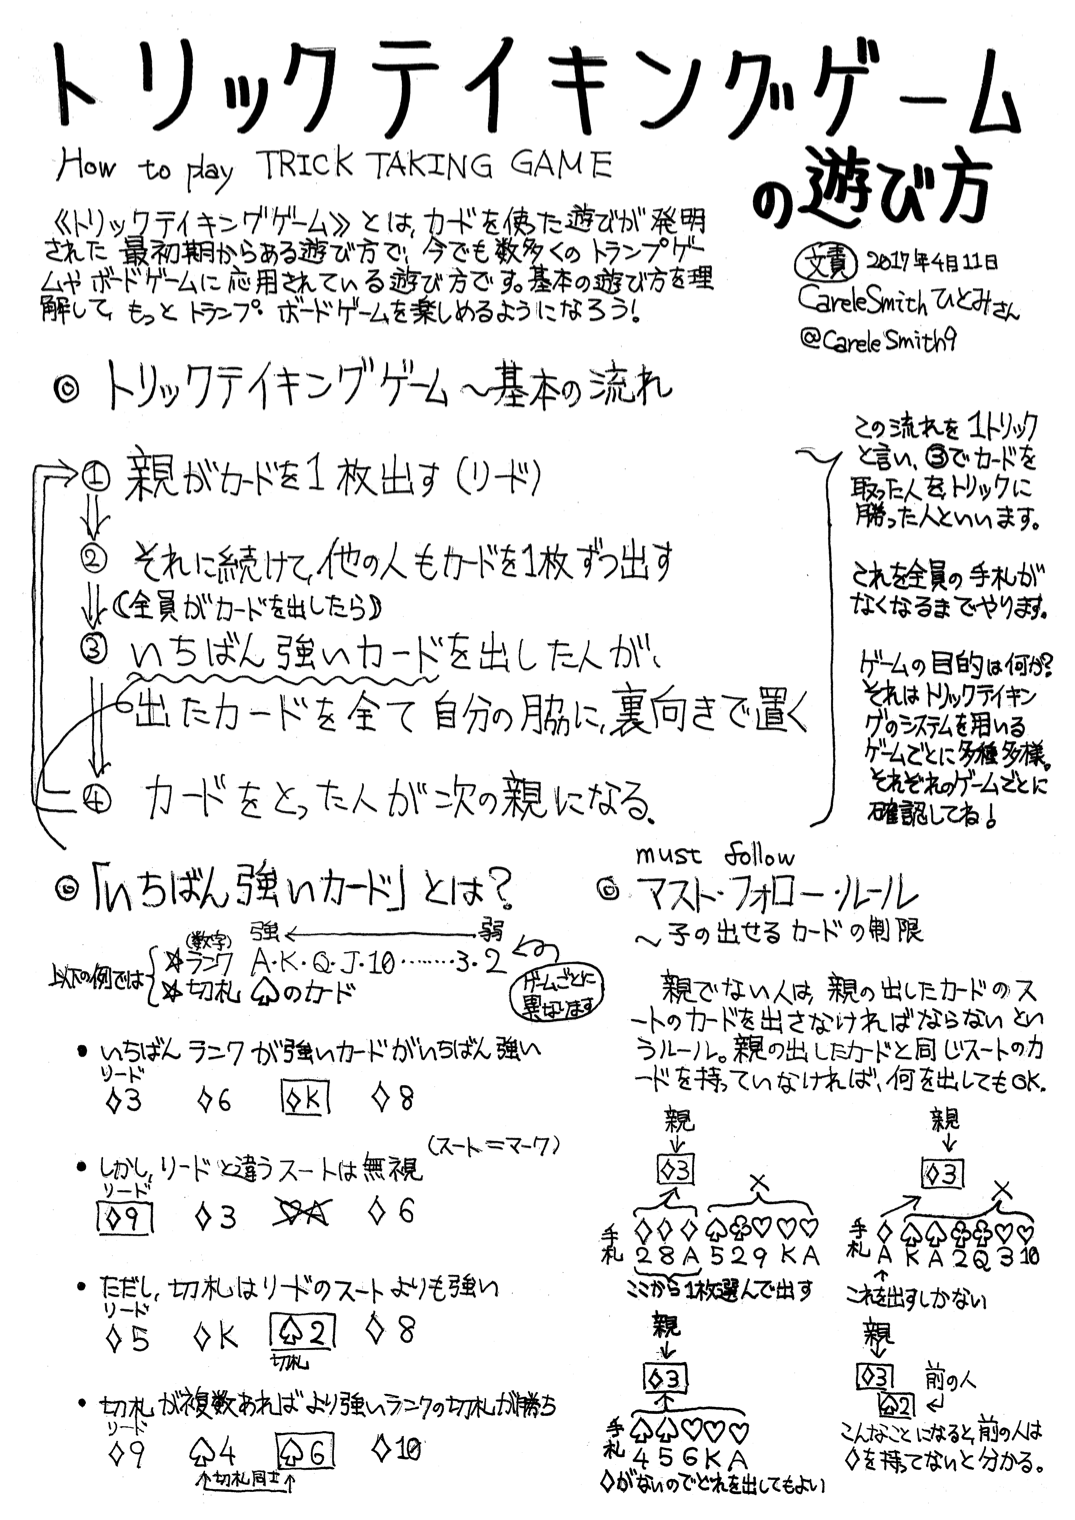 トリックテイキングゲーム
の遊び方
How to play TRICK TAKING GAME
《トリックテイキングゲーム》とは、カードを使った遊びが発明
された最初期からある遊び方で、今でも数多くのトランプゲー
ムやボードゲームに応用されている遊び方です。基本の遊び方を理
解して、もっとトランプ・ボードゲームを楽しめるようになろう!
文責 2017年4月11日
CareleSmithひとみさん
@CareleSmith9
◎ トリックテイキングゲーム～基本の流れ
① 親がカードを1枚出す(リード)
② それに続けて、他の人もカードを1枚ずつ出す
《全員がカードを出したら》
③ いちばん強いカードを出した人が、
出たカードを全て自分の脇に、裏向きで置く
④ カードをとった人が次の親になる。
この流れを1トリック
と言い、③でカードを
取った人を、トリックに
勝った人といいます。
これを全員の手札が
なくなるまでやります。
ゲームの目的は何か?
それはトリックテイキン
グのシステムを用いる
ゲームごとに多種多様。
それぞれのゲームごとに
確認してね!
◎「いちばん強いカード」とは?
以下の例では
(数字) 強 弱
☆ランク A・K・Q・J・10………3・2
☆切札 ♤のカード
ゲームごとに
異なります
• いちばんランクが強いカードがいちばん強い
リード
♢3 ♢6 ♢K ♢8
(スート=マーク)
• しかし、リードと違うスートは無視
リード
♢9 ♢3 ♡A ♢6
• ただし、切札はリードのスートよりも強い
リード
♢5 ♢K ♤2 ♢8
切札
• 切札が複数あればより強いランクの切札が勝ち
リード
♢9 ♤4 ♤6 ♢10
切札同士
must follow
◎ マスト・フォロー・ルール
～子の出せるカードの制限
親でない人は、親の出したカードのス
ートのカードを出さなければならないとい
うルール。親の出したカードと同じスートのカ
ードを持っていなければ、何を出してもOK.
親
♢3
×
手札
♢♢♢♤♧♡♡♡
2 8 A 5 2 9 K A
ここから1枚選んで出す
親
♢3
×
手札
♢♤♤♧♧♡♡
A K A 2 Q 3 10
これを出すしかない
親
♢3
手札
♤♤♡♡♡
4 5 6 K A
♢がないのでどれを出してもよい
親
♢3 前の人
♤2
こんなことになると、前の人は
♢を持ってないと分かる。